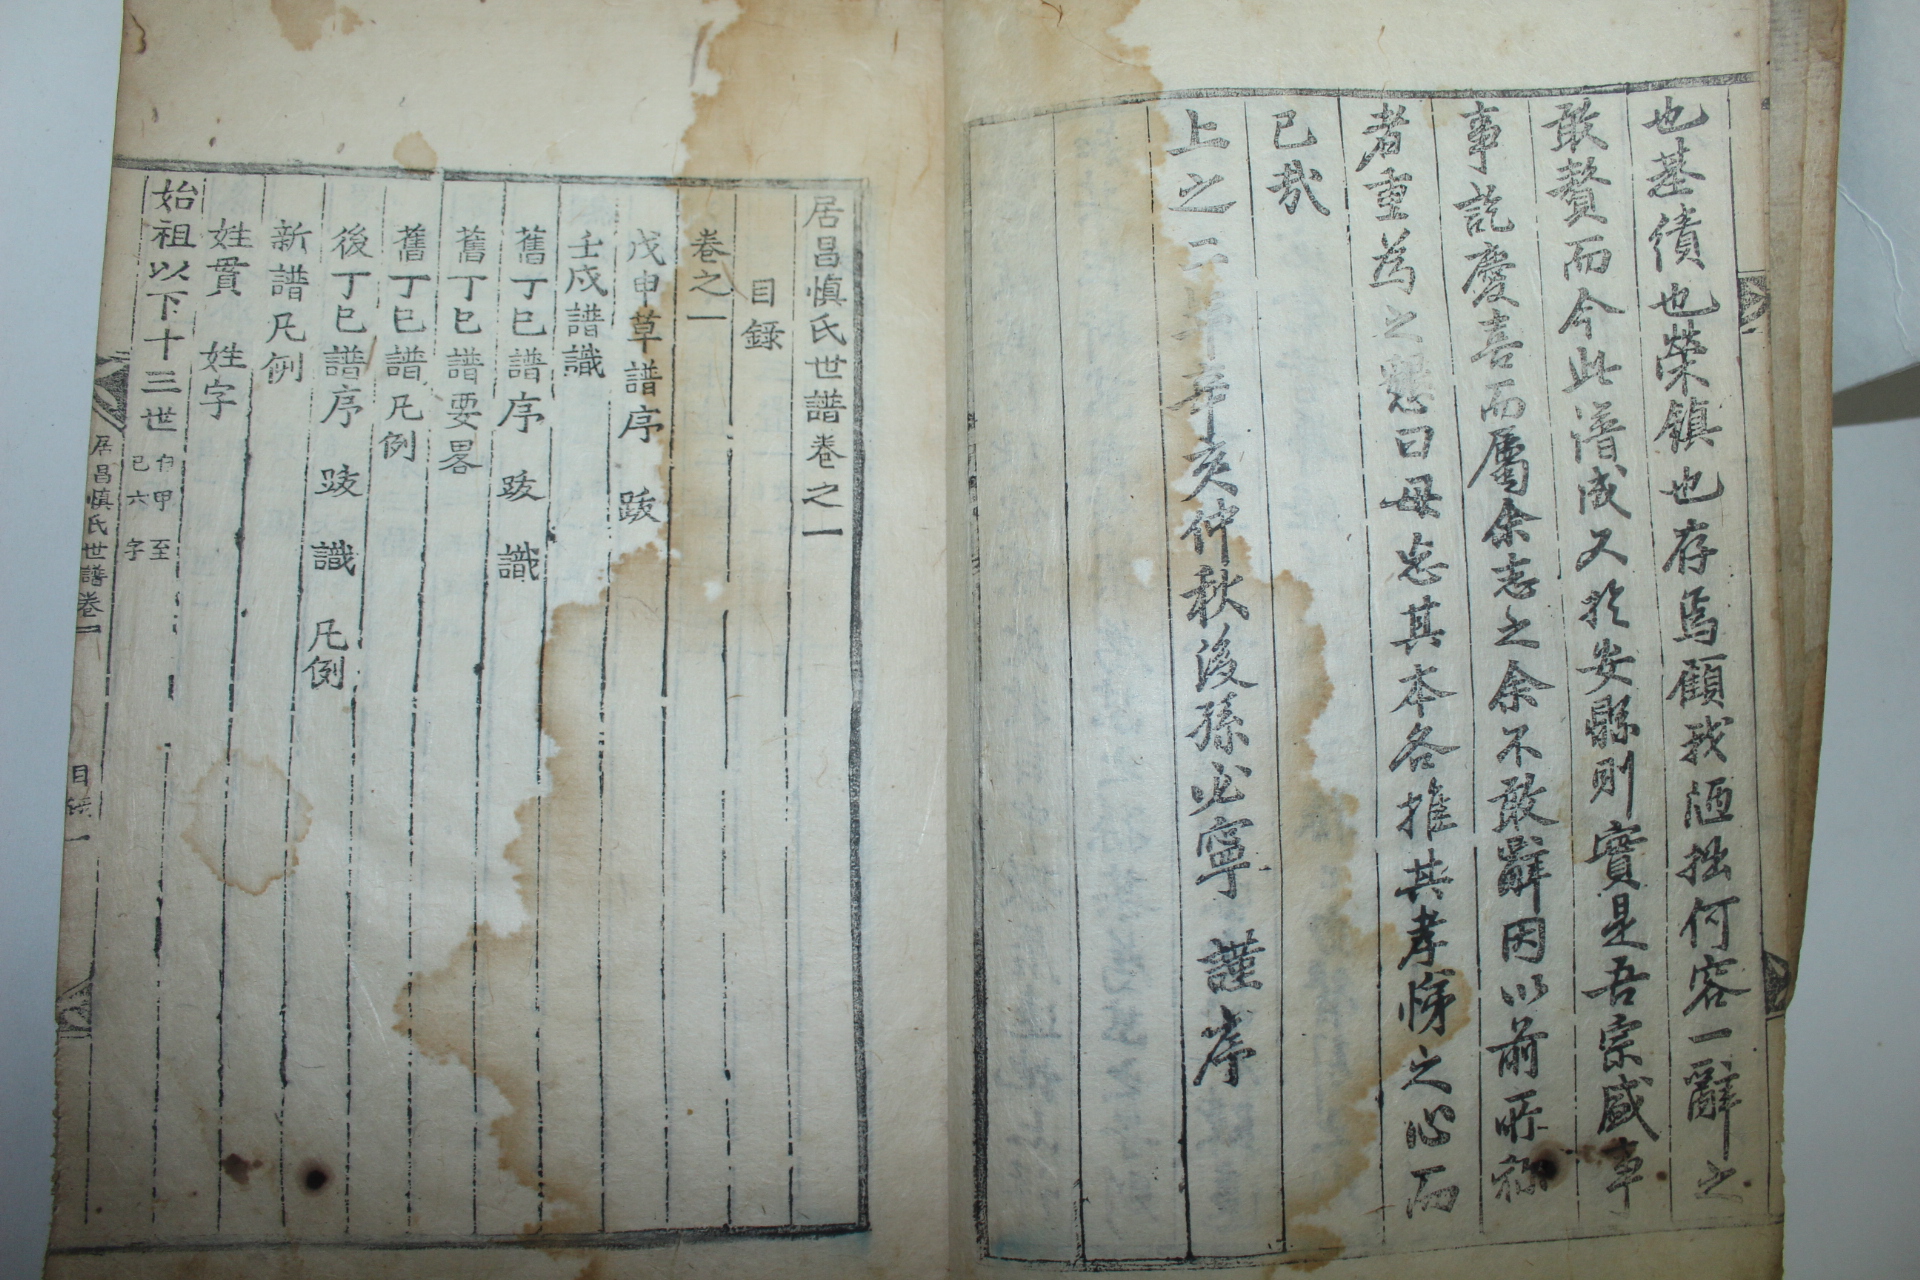 也基績也榮鎮也存焉顧我陋拙何容一辭之
敢贅而今此譜成又於安縣則實是吾宗盛事
事訖慶喜而屬余志之余不敢辭因以前所称
者重爲之懇曰毋忘其本各推其孝悌之心而
已哉
上之二年辛亥仲秋後孫必寧 謹序
居昌愼氏世譜卷之一
目錄
卷之一
戊申草譜序 跋
壬戌譜識
舊丁巳譜序 跋 識
舊丁巳譜要畧
舊丁巳譜凡例
後丁巳譜序 跋 識 凡例
新譜凡例
姓貫 姓字
始祖以下十三世 自甲至
己六字
居昌愼氏世譜卷一 目錄 一